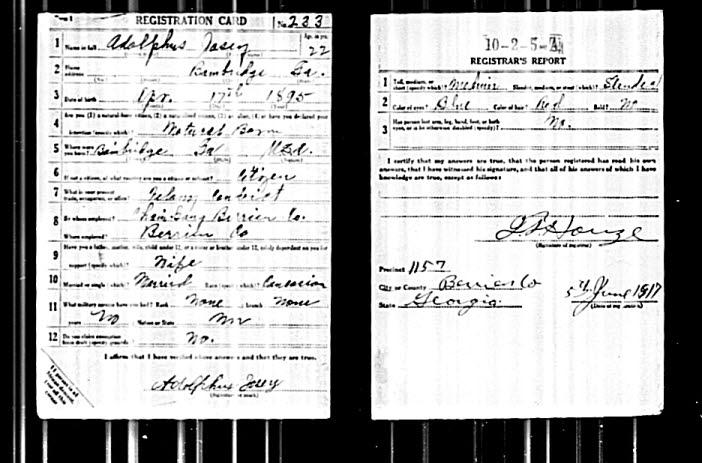 REGISTRATION CARD No. 233
1 Name in full Adolphus Josey Age, in yrs. 22
2 Home address Bainbridge Ga.
3 Date of birth Apr. 17th 1895
4 Are you (1) a natural-born citizen, (2) a naturalized citizen, (3) an alien, (4) or have you declared your
intention (specify which)? Natural Born
5 Where were you born? Bainbridge Ga
6 If not a citizen, of what country are you a citizen or subject? Citizen
7 What is your present trade, occupation, or office?
8 By whom employed? Chain Gang Berrien Co.
Where employed? Berrien Co
9 Have you a father, mother, wife, child under 12, or a sister or brother under 12, solely dependent on you for
support (specify which)? Wife
10 Married or single (which)? Married Race (specify which)? Caucasian
11 What military service have you had? Rank None branch None
years No Nation or State No
12 Do you claim exemption from draft (specify grounds)? No.
I affirm that I have verified above answers and that they are true.
Adolphus Josey
(Signature or mark)
10-2-5-A
REGISTRAR'S REPORT
1 Tall, medium, or short (specify which)? Medium Slender, medium, or stout (which)? Slender
2 Color of eyes? Blue Color of hair? Red Bald? No
3 Has person lost arm, leg, hand, foot, or both
eyes, or is he otherwise disabled (specify)? No.
I certify that my answers are true, that the person registered has read his own
answers, that I have witnessed his signature, and that all of his answers of which I have
knowledge are true, except as follows:
(Signature of registrar)
Precinct 1157
City or County Berrien Co
State Georgia
5th June 1917
(Date of registration)